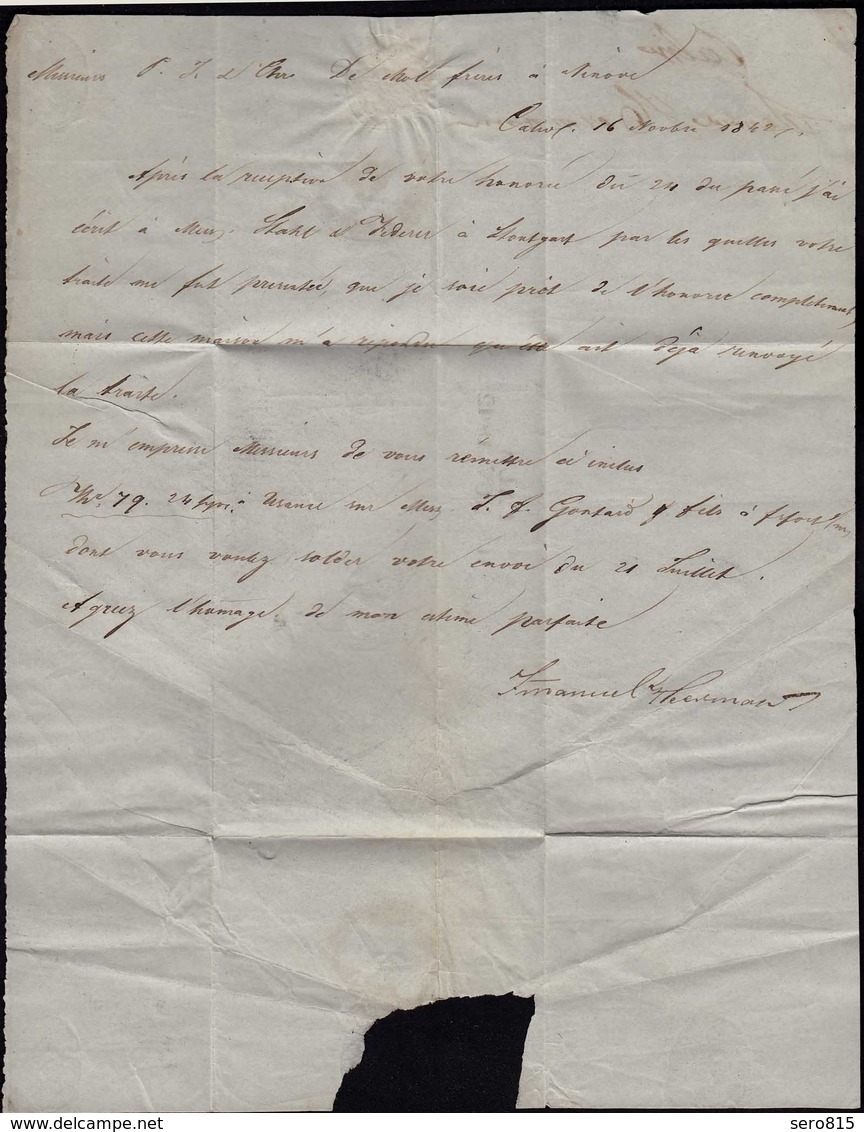 Messieurs P. J. & Chr. De Mol frères à Ninove
Calw. 16 Novbre 1842.
Après la reception de votre honorée du 24 du passé j'ai
écrit à Mess. Stahl & Federer à Stoutgart par les quelles votre
traite me fut presentée, que je sois prèt de l'honorer completement,
mais cette maison m'a repondu qu'elle ait déja renvoyé
la traite.
Je m'empresse Messieurs de vous rémettre ci inclus
Thr. 79. 24 sgr. à Usance sur Mess. J. F. Gontard & fils à Frfort s/m
dont vous voulez solder votre envoi du 21 Juillet.
Agréez l'homage de mon estime parfaite
Immanuel Hermann
sero815